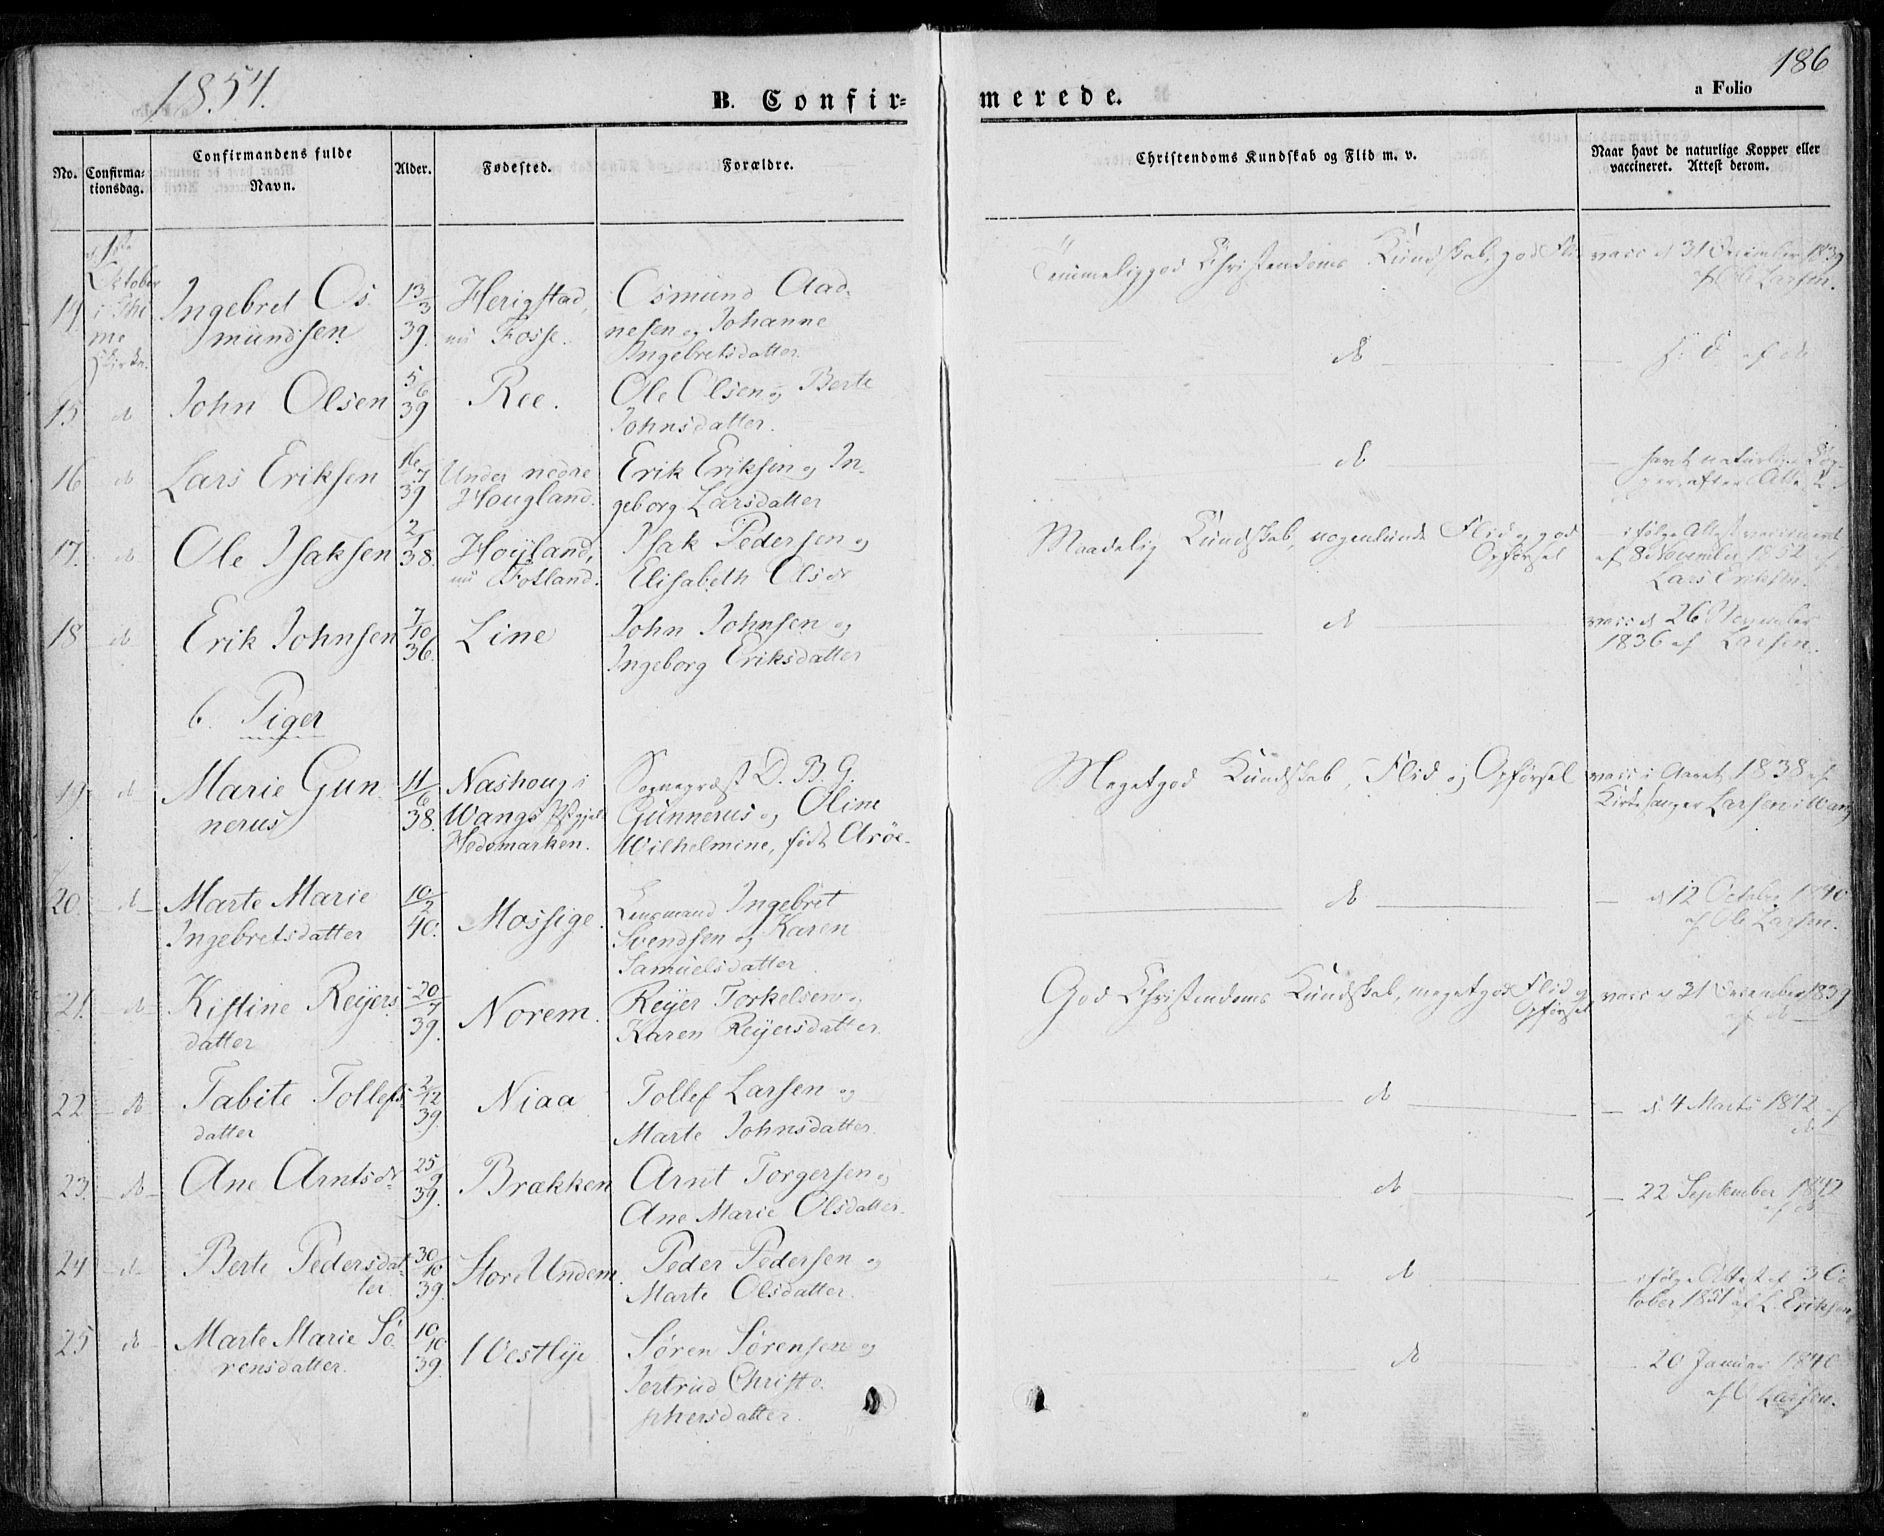 1854.
B. Confir=
merede.
186
a Folio
No.
Confirma=
tionsdag.
Confirmandens fulde
Navn.
Alder.
Fødested.
Forældre.
Christendoms Kundskab og Flid m. v.
Naar havt de naturlige Kopper eller
vaccineret. Attest derom.
Oktober
i Thi
me
Kirke.
14
Ingebret Os
mundsen
13/3
39.
Herigstad,
nu Fosse.
Osmund Aad-
nesen og Johanne
Ingebretsdatter
Temmeliggod Christendoms Kundskab, god Fli
vacc d 31 December 1839
af Ole Larsen.
15
do
John Olsen
5/6
39
Ree.
Ole Olsen og Berte
Johnsdatter.
do
af do
16
do
Lars Eriksen
16/7
39
Under nedre
Hougland.
Erik Eriksen og In-
geborg Larsdatter
do
havt naturlige Kop
per efter Atte
17.
do
Ole Isaksen
2/1
38.
Hoÿland,
nu Fotland.
Isak Pedersen og
Elisabeth Olsdr
Maadelig Kundskab, nogenlunde Flid og god
Opførsel
ifølge Attest vaccineret
af 8de November 1852 af
Lars Eriksen.
18
do
Erik Johnsen
7/10
36.
Line
John Johnsen og
Ingeborg Eriksdatter
do
vacc d 26 November
1836 af Larsen.
b. Piger
19
do
Marie Gun
nerus
11/6
38.
Nashoug i
Wangs Pstgjeld
Hedemarken.
Sognepræst D. B. G.
Gunnerus og Oline
Wilhelmine, født Arøe.
Megetgod Kundskab, Flid og Opførsel
vacc i Aaret 1838 af
Kirkesanger Larsen i Wang
20.
do
Marte Marie
Ingebretsdatter
10/2
40.
Mossige.
Lensmand Ingebret
Svendsen og Karen
Samuelsdatter
do
d 12 October 1840
af Ole Larsen.
21.
do
Kistine Reÿers
datter
20/7
39.
Norem.
Reÿer Torkelsen og
Karen Reÿersdatter.
God Christendoms Kundskab, megetgod Flid og
Opførsel
vacc d 31 December 1839
af do
22
do
Tabite Tollefs
datter
2/12
39.
Niaa
Tollef Larsen og
Marte Johnsdatter.
do
d. 4 Marts 1842 af
do
23.
do
Ane Arntsdr
25/9
39.
Brækken
Arnt Torgersen og
Ane Marie Olsdatter.
do
22 September 1842
af do
24
do
Berte Pedersdat-
ter.
30/10
39.
Store Undem.
Peder Pedersen og
Marte Olsdatter.
do
ifølge Attest af 3 Oc
tober 1851 af L. Eriksen
25
do
Marte Marie Sö
rensdatter.
10/10
39.
Westlÿe
Søren Sørensen og
Jertrud Christo.
phersdatter.
do
20 Januar 1840
af O Larsen.